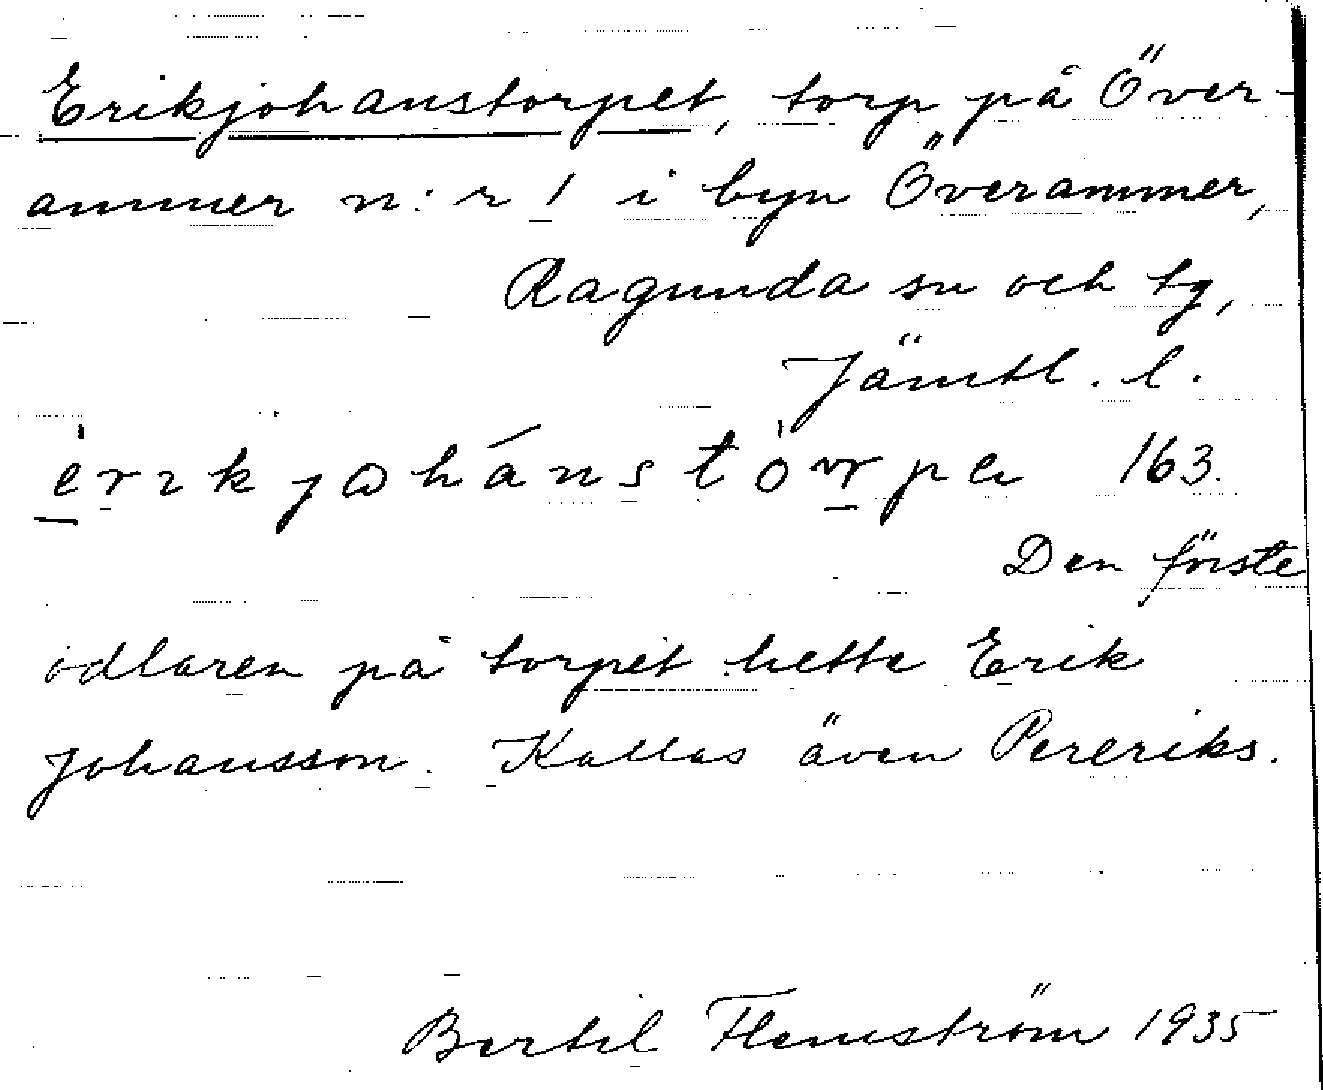 Erikjohanstorpet, torp på Över-
ammer n:r 1 i byn Överammer,
Ragunda sn och tg,
Jämtl. l.
163.
Den förste
odlaren på torpet hette Erik
Johansson. Kallas även Pereriks.
Bertil Flemström 1935